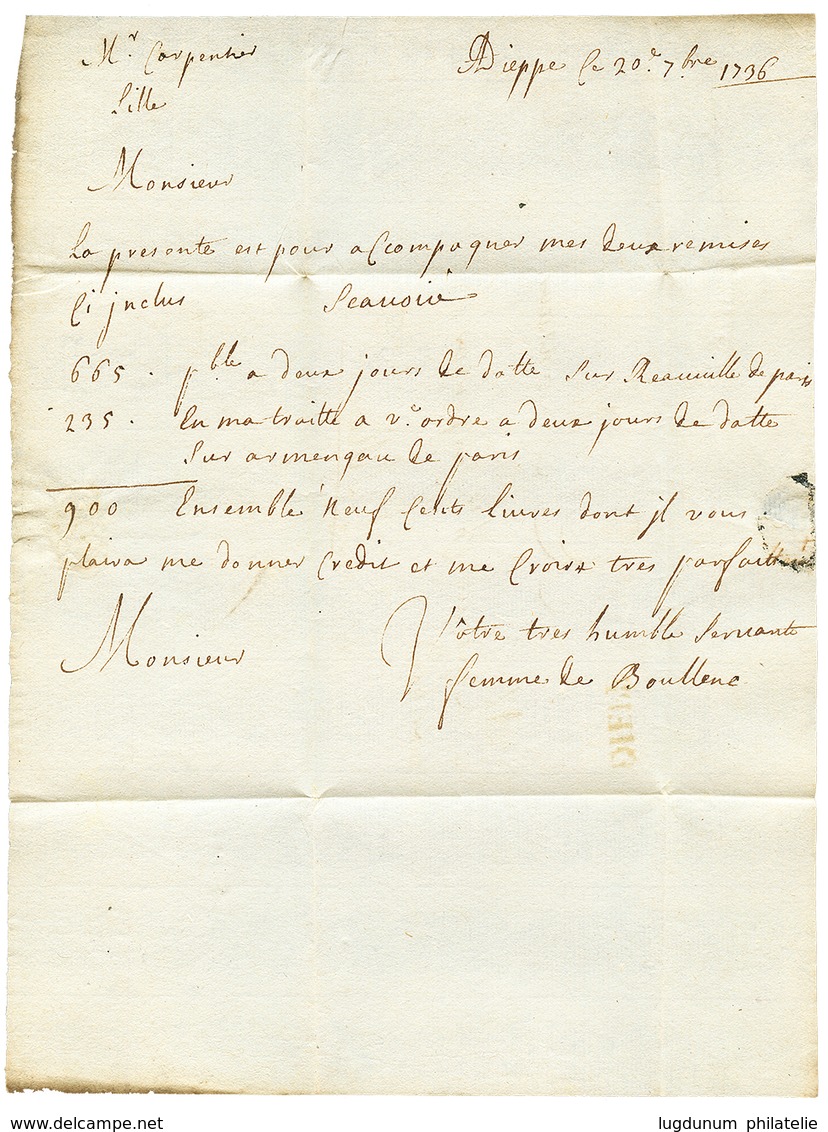 Mr Carpentier
Lille
A Dieppe Ce 20e 7bre 1736
Monsieur
La presente est pour accompagner mes deux remises
Cy jnclus Scauoir
665 . pble a deux jours de datte sur Reauville de paris
235 . En ma traitte a ve ordre a deux jours de datte
sur armengau de paris
900 Ensemble Neuf Cents liures dont jl vous
plaira me donner Credit et me Croire tres parfaitt
Monsieur
Vôtre tres humble seruante
femme de Boullene
DIEP
www.delcampe.net
lugdunum philatelie